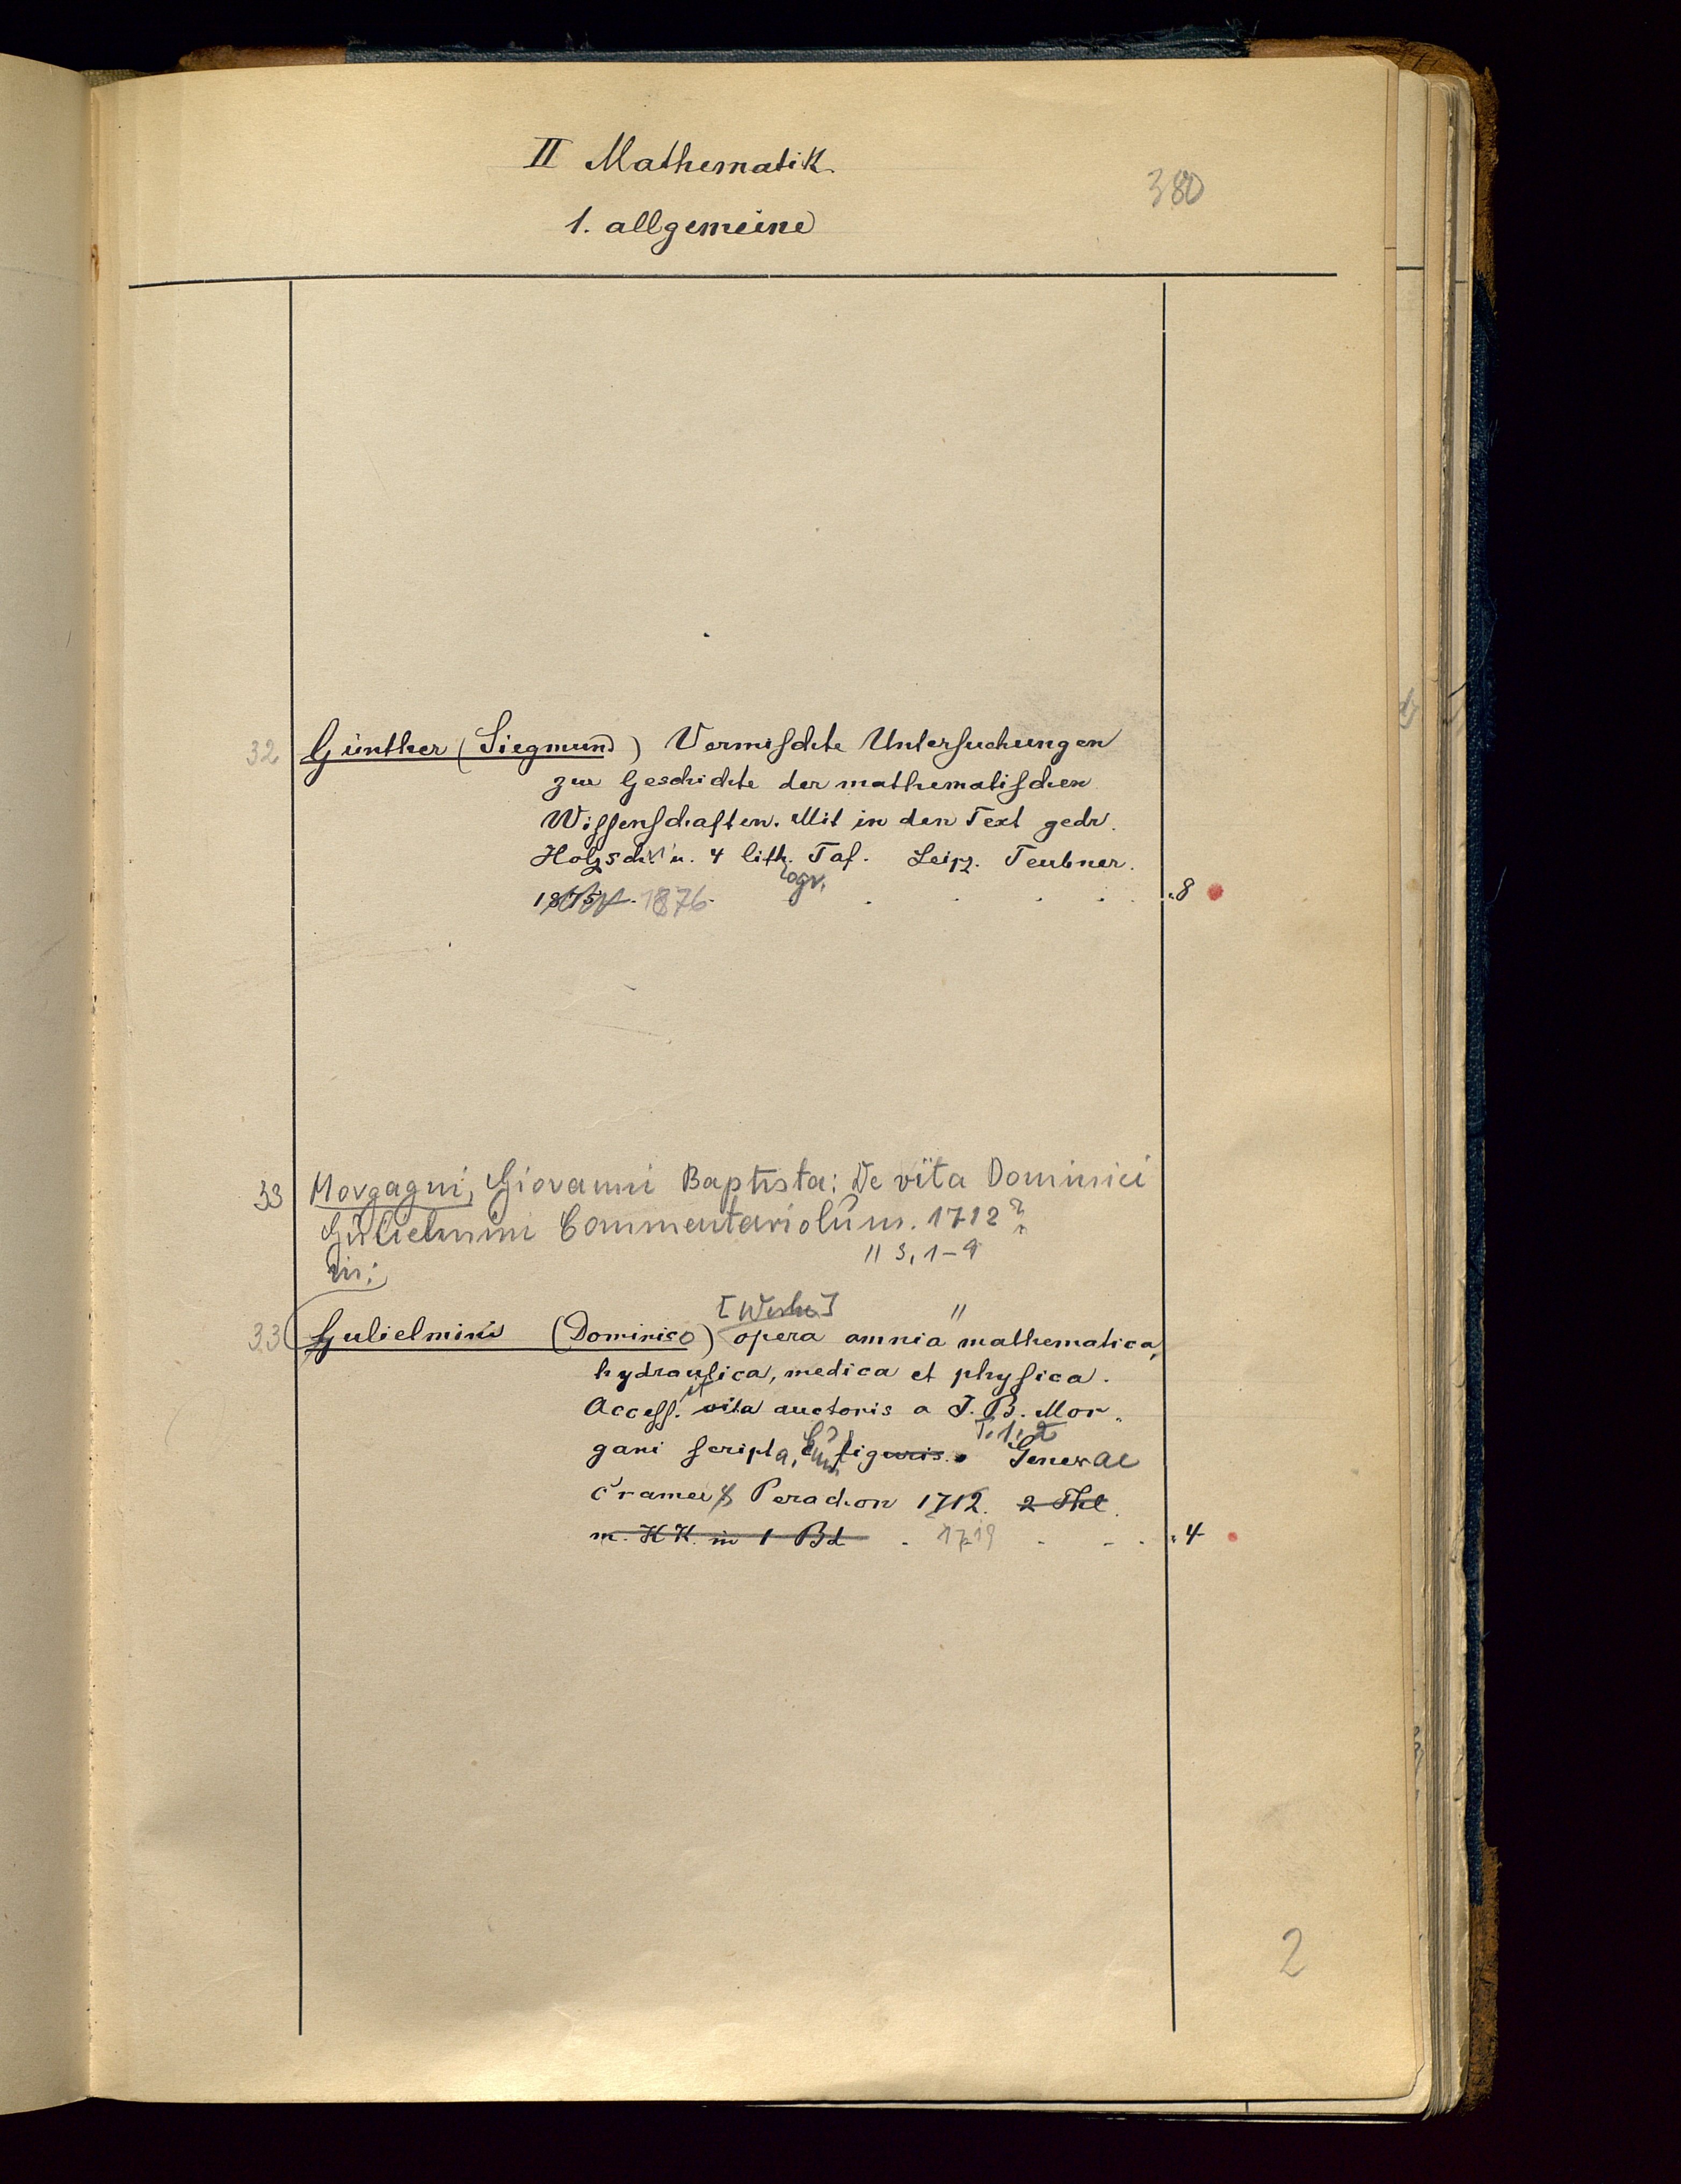 II Mathematik.
380
1. allgemeine
32 Günther (Siegmund) Vermischte Untersuchungen
zur Geschichte der mathematischen
Wissenschaften. Mit in den Text gedr.
Holzschn. u. 4 lith. Taf. Leipz. Teubner.
ogr.
1876. 8
33 Morgagni, Giovanni Baptista: De vita Dominici
Gulielmini Commentariolum. 1712?
II S. 1-9
in:
[Werke] "
33 Gulielmini (Dominico) opera omnia mathematica,
hydraulica, medica et physica.
Access. vita auctoris a J. B. Mor„
T. 1. 2
gani scripta, Cum figuris. Genevae
Cramer & Perachon 1712. 2 Thl.
m. KK. in 1 Bd. 1719 4
2